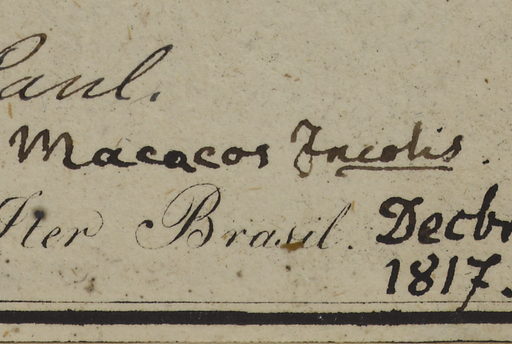 Paul.
Macacos Incolis.
Iter Brasil. Decbr
1817.